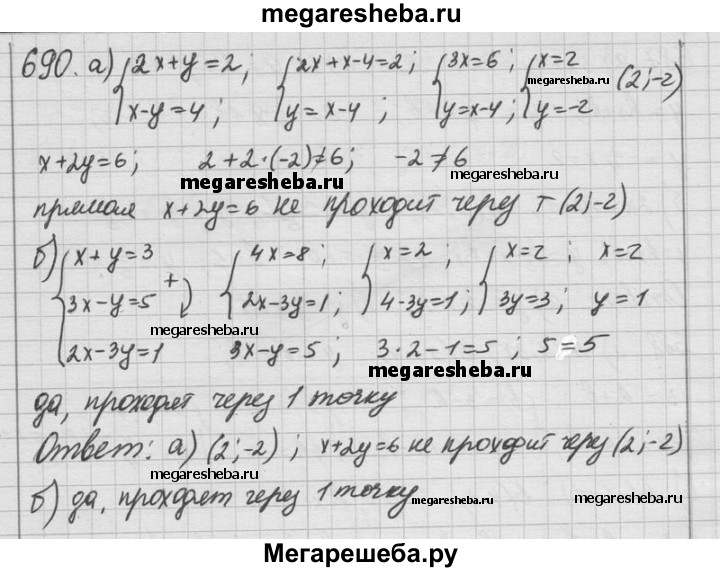 megaresheba.ru
690. а) {2x+y=2; x-y=4; {2x+x-4=2; y=x-4; {3x=6; y=x-4; {x=2 y=-2 (2;-2)
megaresheba.ru
x+2y=6; 2+2·(-2)≠6; -2≠6
megaresheba.ru megaresheba.ru
прямая x+2y=6 не проходит через т (2;-2)
б) {x+y=3 3x-y=5 2x-3y=1 + {4x=8; 2x-3y=1; {x=2; 4-3y=1; {x=2; 3y=3; x=2 y=1
megaresheba.ru megaresheba.ru
3x-y=5; 3·2-1=5; 5=5
megaresheba.ru
да, проходят через 1 точку
Ответ: а) (2;-2); x+2y=6 не проходит через (2;-2)
megaresheba.ru
б) да, проходят через 1 точку
megaresheba.ru megaresheba.ru
Мегарешеба.ру